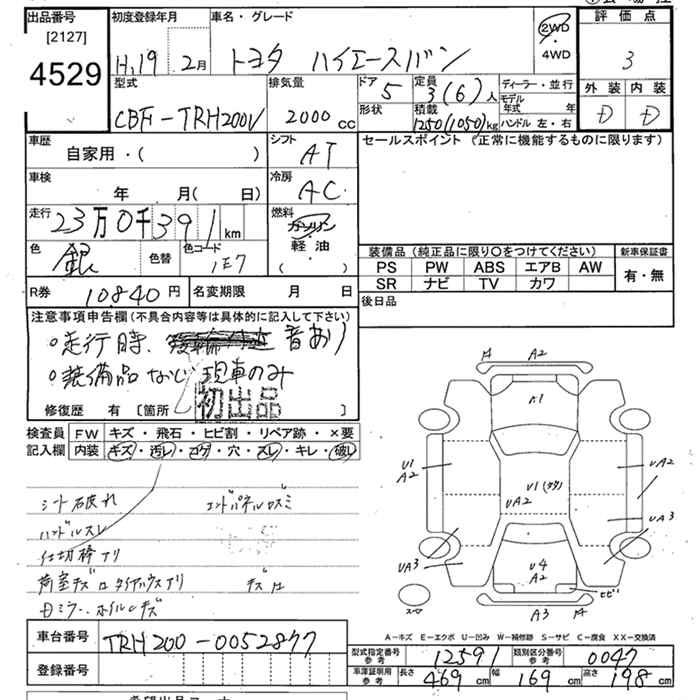 出品番号
[2127]
4529
初度登録年月
H,19 2月
車名・グレード
トヨタ ハイエースバン
2WD
4WD
評価点
3
外装 内装
D D
型式
CBF-TRH200V
排気量
2000cc
ドア
5
形状
定員
3(6)人
積載
1250(1050)kg
ディーラー・並行
モデル年式 年
ハンドル 左・右
車歴
自家用・( )
シフト
AT
セールスポイント (正常に機能するものに限ります)
車検
年 月(日)
冷房
AC
走行
23万0千391km
燃料
ガソリン
軽油
( )
色
銀
色替
色コード
1E7
装備品(純正品に限り○をつけてください)
PS PW ABS エアB AW
SR ナビ TV カワ
新車保証書
有・無
R券
10840円
名変期限 月 日
後日品
注意事項申告欄(不具合内容等は具体的に記入して下さい)
○走行時、音あり
○装備品なし 現車のみ
修復歴 有 [箇所 ]
初出品
検査員記入欄
FW キズ・飛石・ヒビ割・リペア跡・×要
内装 キズ・汚レ・コゲ・穴・スレ・キレ・破レ
シート破れ
エンドパネルロズミ
ハンドルスレ
仕切棒アリ
キズ
A2
A1
U1
A2
U1
UA2
UA2
UA3
UA3
U4
A2
ヒビ
A3
スマ
A-キズ E-エクボ U-凹み W-補修跡 S-サビ C-腐食 XX-交換済
車台番号
TRH200-0052877
登録番号
型式指定番号
参考
12591
類別区分番号
参考
0047
車庫証明用
参考
長さ 469cm 幅 169cm 高さ 198cm